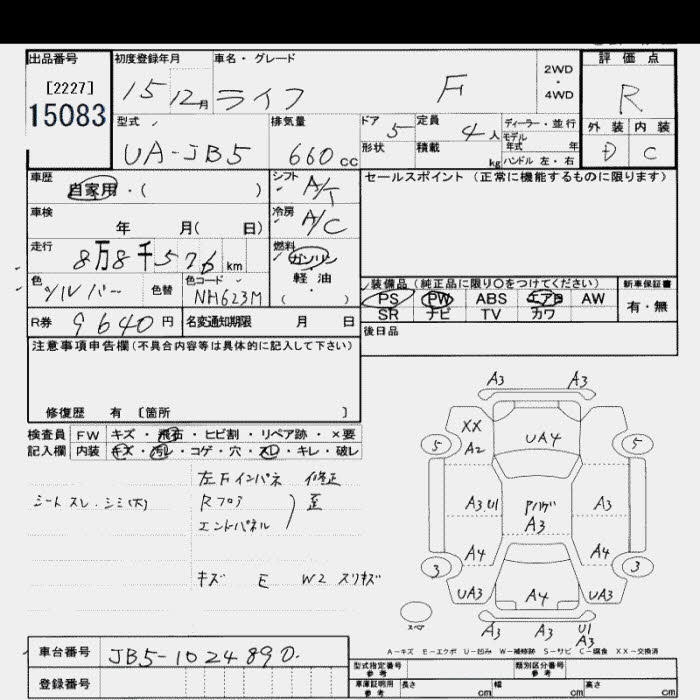 出品番号 初度登録年月 車名・グレード 評価点
[2227] 15 12月 ライフ F 2WD・4WD R
15083
型式 排気量 ドア 5 定員 4人 ディーラー・並行 外装 内装
モデル
UA-JB5 660cc 形状 積載 kg 年式 年 D C
ハンドル 左・右
車歴 シフト セールスポイント(正常に機能するものに限ります)
自家用・( ) A/T
車検 冷房
年 月( 日) A/C
走行 燃料
8万8千576km ガソリン
色 色替 色コード 軽・油 装備品(純正品に限り〇をつけてください) 新車保証書
シルバー NH623M ( ) PS PW ABS エアB AW 有・無
SR ナビ TV カワ
R券 9640円 名変通知期限 月 日 後日品
注意事項申告欄(不具合内容等は具体的に記入して下さい)
修復歴 有 [箇所 ]
検査員 FW キズ・飛石・ヒビ割・リペア跡・×要
記入欄 内装 キズ・汚レ・コゲ・穴・スレ・キレ・破レ
左Fインパネ 修正
シートスレ・シミ(大) Rフロア 歪
エンドパネル
キズ E W2 スリキズ
A3 A3
XX UA4
5 A2 5
A3 U1 A3 A3
A4 A4
3 3
UA3 A4 UA3
スペア A3 A3 U1
A3
A-キズ E-エクボ U-凹み W-補修跡 S-サビ C-腐食 XX-交換済
車台番号 JB5-1024890
型式指定番号 参考 類別区分番号 参考
登録番号 車庫証明用 参考 長さ cm 幅 cm 高さ cm